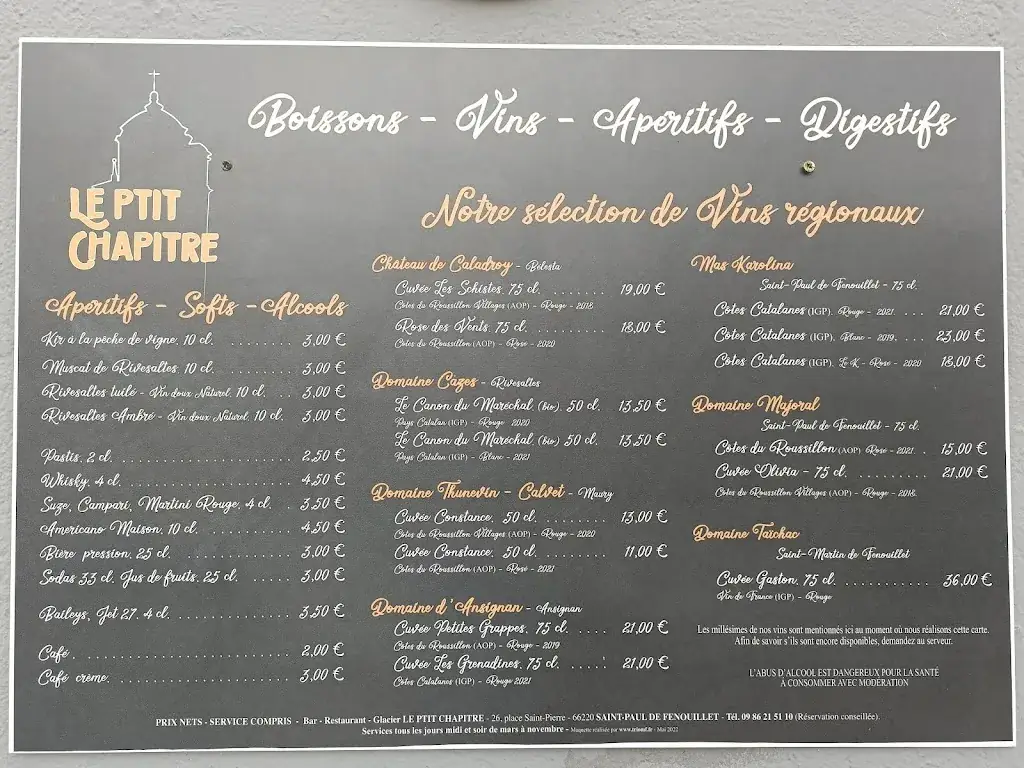 Boissons - Vins - Apéritifs - Digestifs
LE PTIT
CHAPITRE
Notre sélection de Vins régionaux
Apéritifs - Softs - Alcools
Kir à la pêche de vigne, 10 cl. ........ 3,00 €
Muscat de Rivesaltes, 10 cl. ........ 3,00 €
Rivesaltes tuilé - Vin doux Naturel, 10 cl. .... 3,00 €
Rivesaltes Ambré - Vin doux Naturel, 10 cl. .. 3,00 €
Pastis, 2 cl. .................... 2,50 €
Whisky, 4 cl. .................... 4,50 €
Suze, Campari, Martini Rouge, 4 cl. ... 3,50 €
Americano Maison, 10 cl. .......... 4,50 €
Bière pression, 25 cl. ............. 3,00 €
Sodas 33 cl, Jus de fruits, 25 cl. ..... 3,00 €
Baileys, Jet 27, 4 cl. ............. 3,50 €
Café ........................ 2,00 €
Café crème ..................... 3,00 €
Château de Caladroy - Bélesta
Cuvée Les Schistes, 75 cl. ........ 19,00 €
Côtes du Roussillon Villages (AOP) - Rouge - 2018
Rose des Vents, 75 cl. .......... 18,00 €
Côtes du Roussillon (AOP) - Rosé - 2020
Domaine Cazes - Rivesaltes
Le Canon du Maréchal (bio), 50 cl. 13,50 €
Pays Catalan (IGP) - Rouge 2020
Le Canon du Maréchal (bio) 50 cl. 13,50 €
Pays Catalan (IGP) - Blanc - 2021
Domaine Thunevin - Calvet - Maury
Cuvée Constance, 50 cl. ......... 13,00 €
Côtes du Roussillon Villages (AOP) - Rouge - 2020
Cuvée Constance, 50 cl. ......... 11,00 €
Côtes du Roussillon (AOP) - Rosé - 2021
Domaine d'Ansignan - Ansignan
Cuvée Petites Grappes, 75 cl. .... 21,00 €
Côtes du Roussillon (AOP) - Rouge - 2019
Cuvée Les Grenadines, 75 cl. ..... 21,00 €
Côtes Catalanes (IGP) - Rouge 2021
Mas Karolina
Saint-Paul de Fenouillet - 75 cl.
Côtes Catalanes (IGP), Rouge - 2021 ... 21,00 €
Côtes Catalanes (IGP), Blanc - 2019 ... 23,00 €
Côtes Catalanes (IGP), Le K - Rosé - 2020 18,00 €
Domaine Majoral
Saint-Paul de Fenouillet - 75 cl.
Côtes du Roussillon (AOP) Rosé - 2021 . 15,00 €
Cuvée Olivia - 75 cl. ........... 21,00 €
Côtes du Roussillon Villages (AOP) - Rouge - 2018
Domaine Taïchac
Saint-Martin de Fenouillet
Cuvée Gaston, 75 cl. ........... 36,00 €
Vin de France (IGP) - Rouge
Les millésimes de nos vins sont mentionnés ici au moment où nous réalisons cette carte.
Afin de savoir s'ils sont encore disponibles, demandez au serveur.
L'ABUS D'ALCOOL EST DANGEREUX POUR LA SANTÉ
À CONSOMMER AVEC MODÉRATION
PRIX NETS - SERVICE COMPRIS - Bar - Restaurant - Glacier LE PTIT CHAPITRE - 26, place Saint-Pierre - 66220 SAINT-PAUL DE FENOUILLET - Tél. 09 86 21 51 10 (Réservation conseillée).
Services tous les jours midi et soir de mars à novembre - Maquette réalisée par - Mai 2022